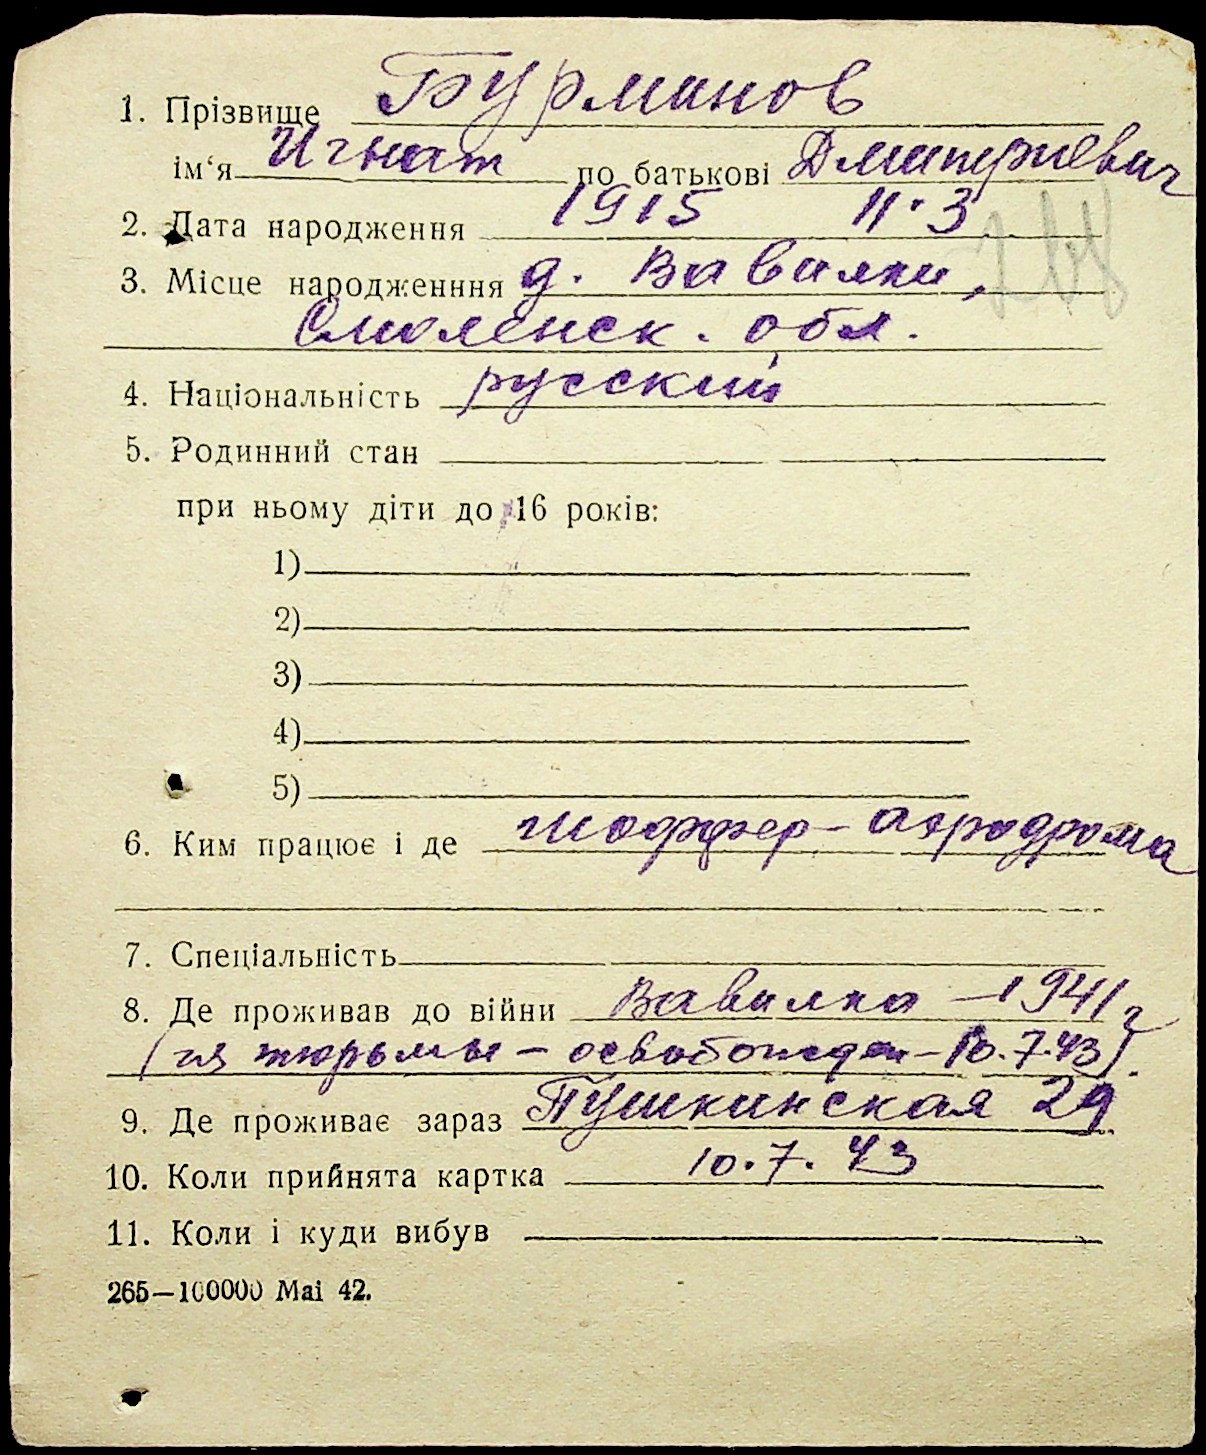 1. Прізвище Бурманов
ім‘я Игнат по батькові Дмитриевич
2. Дата народження 1915 11.3
3. Місце народженння д. Вавилки,
Смоленск. обл.
4. Національність русский
5. Родинний стан
при ньому діти до 16 років:
1)
2)
3)
4)
5)
6. Ким працює і де шоффер – аэродрома
7. Спеціальність
8. Де проживав до війни Вавилка – 1941 г
(из тюрьмы – освобожден – 10.7.43).
9. Де проживає зараз Пушкинская 29.
10. Коли прийнята картка 10.7.43
11. Коли і куди вибув
265—100000 Mai 42.